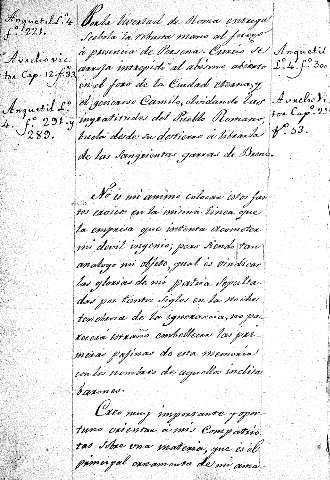 Anquetil L.º 4
f.º 221.
Aurelio Vic-
tor Cap. 12. f. 33
Anquetil L.º
4. f.º 291. y
289.
Por la livertad de Roma entrega
Scebola la robusta mano al fuego
á presencia de Porsena. Curcio se
arroja intrepido al abismo abierto
en el foro de la Ciudad eterna, y
el generoso Camilo, olvidando las
ingratitudes del Pueblo Romano,
buela desde su destierro á librarla
de las sangrientas garras de Breno.
Anquetil
L.º 4. f.º 300
Aurelio Vic
tor Cap. 23
f.º 53.
No es mi animo colocar estos fas
tos eroicos en la misma linea que
la empresa que intenta acometer
mi devil ingenio; pero siendo tan
analogo mi objeto, qual es vindicar
las glorias de mi patria sepulta-
das por tantos siglos en la noche
tenebrosa de la ignorancia, no pa-
recerá estraño embellecer las pri-
meras paginas de esta memoria
con los nombres de aquellos inclitos
barones.
Creo muy importante y opor-
tuno orientar á mis compatrio-
tas sobre una materia, que es el
principal ornamento de mi ama-